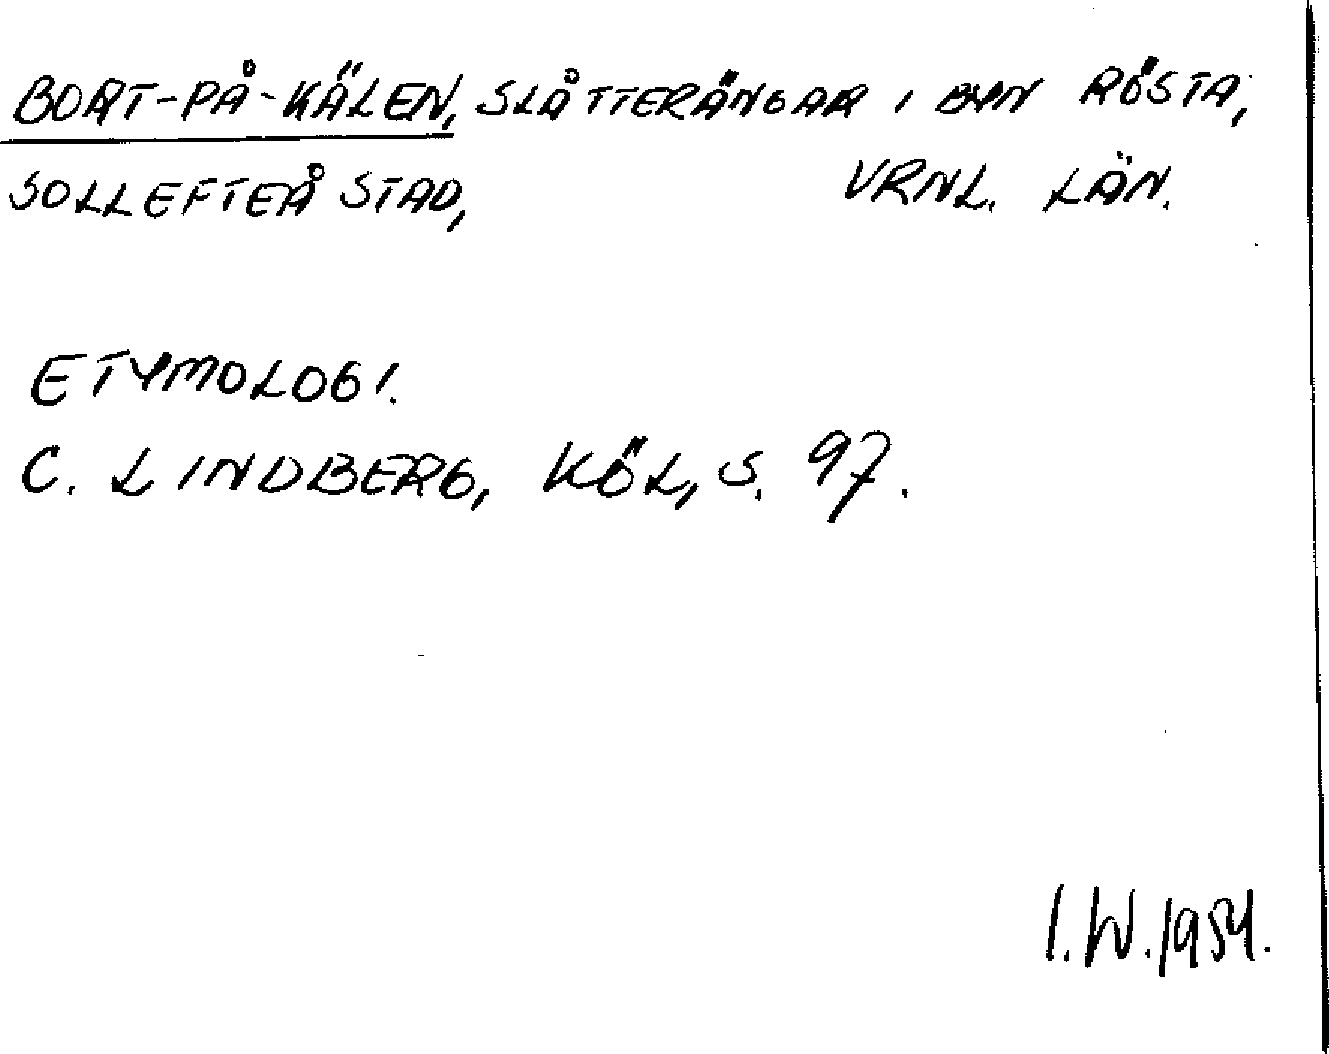 BORT-PÅ-KÄLEN, SLÅTTERÄNGAR I BYN RÖSTA,
SOLLEFTEÅ STAD, VRNL. LÄN.
ETYMOLOGI.
C. LINDBERG, KÖL, S. 97.
I. W. 1954.